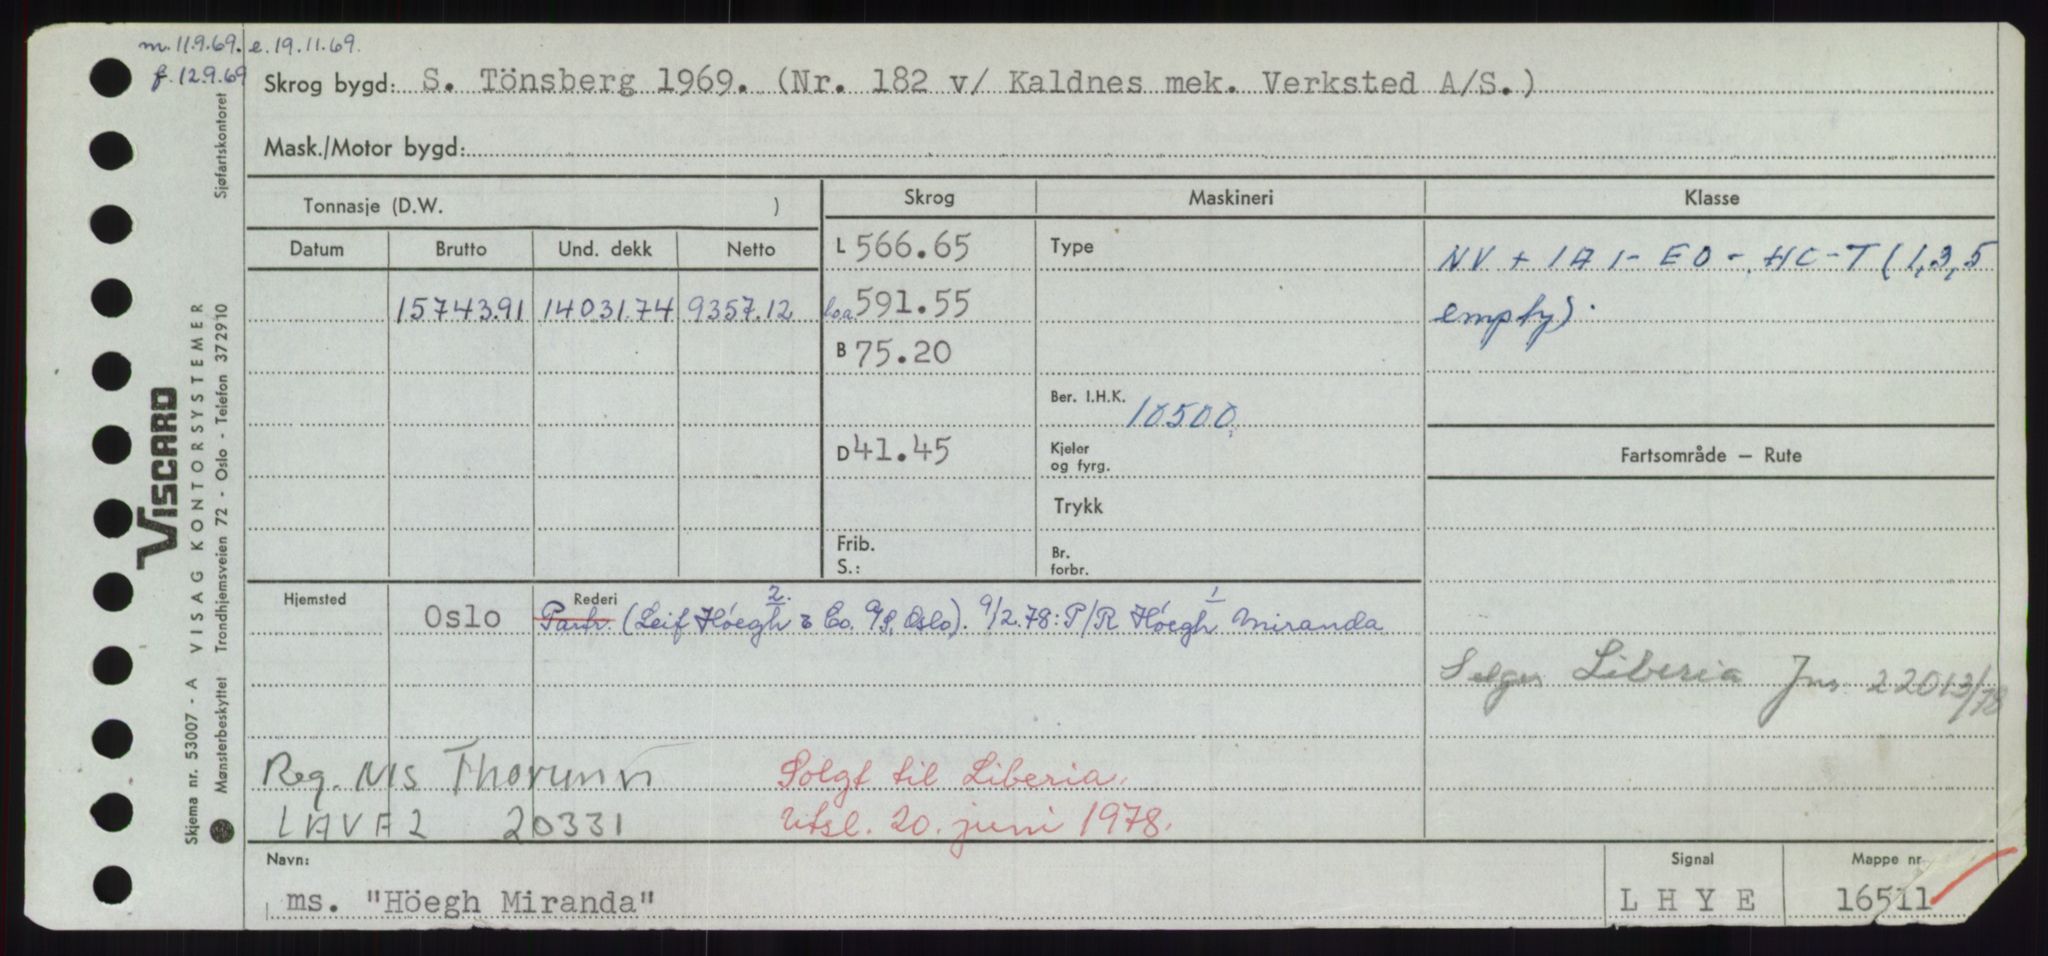 m. 11.9.69. e. 19.11.69.
f. 12.9.69
Skrog bygd: S. Tönsberg 1969. (Nr. 182 v/ Kaldnes mek. Verksted A/S.)
Mask./Motor bygd:
Tonnasje (D.W. )
Skrog Maskineri Klasse
Datum Brutto Und. dekk Netto
L 566.65 Type NV + 1A1 - EO - HC - T (1,3,5
15743.91 14031.74 9357.12 loa 591.55 empty).
B 75.20
Ber. I.H.K. 10500
D 41.45 Kjeler
og fyrg.
Fartsområde — Rute
Trykk
Frib.
S.:
Br.
forbr.
Hjemsted Rederi 2. 1
Oslo Partr. (Leif Höegh & Co. A/S, Oslo). 9/2.78: P/R Höegh Miranda
Selges Liberia Jnr 2201-3/78
Reg. Ms Thorunn Solgt til Liberia.
LAVA2 20331 Utsl. 20. juni 1978.
Navn: Signal Mappe nr
ms. "Höegh Miranda" L H Y E 16511
VISCARD
VISAG KONTORSYSTEMER
Skjema nr. 53007 - A
Mønsterbeskyttet Trondhjemsveien 72 - Oslo - Telefon 372910 Sjøfartskontoret